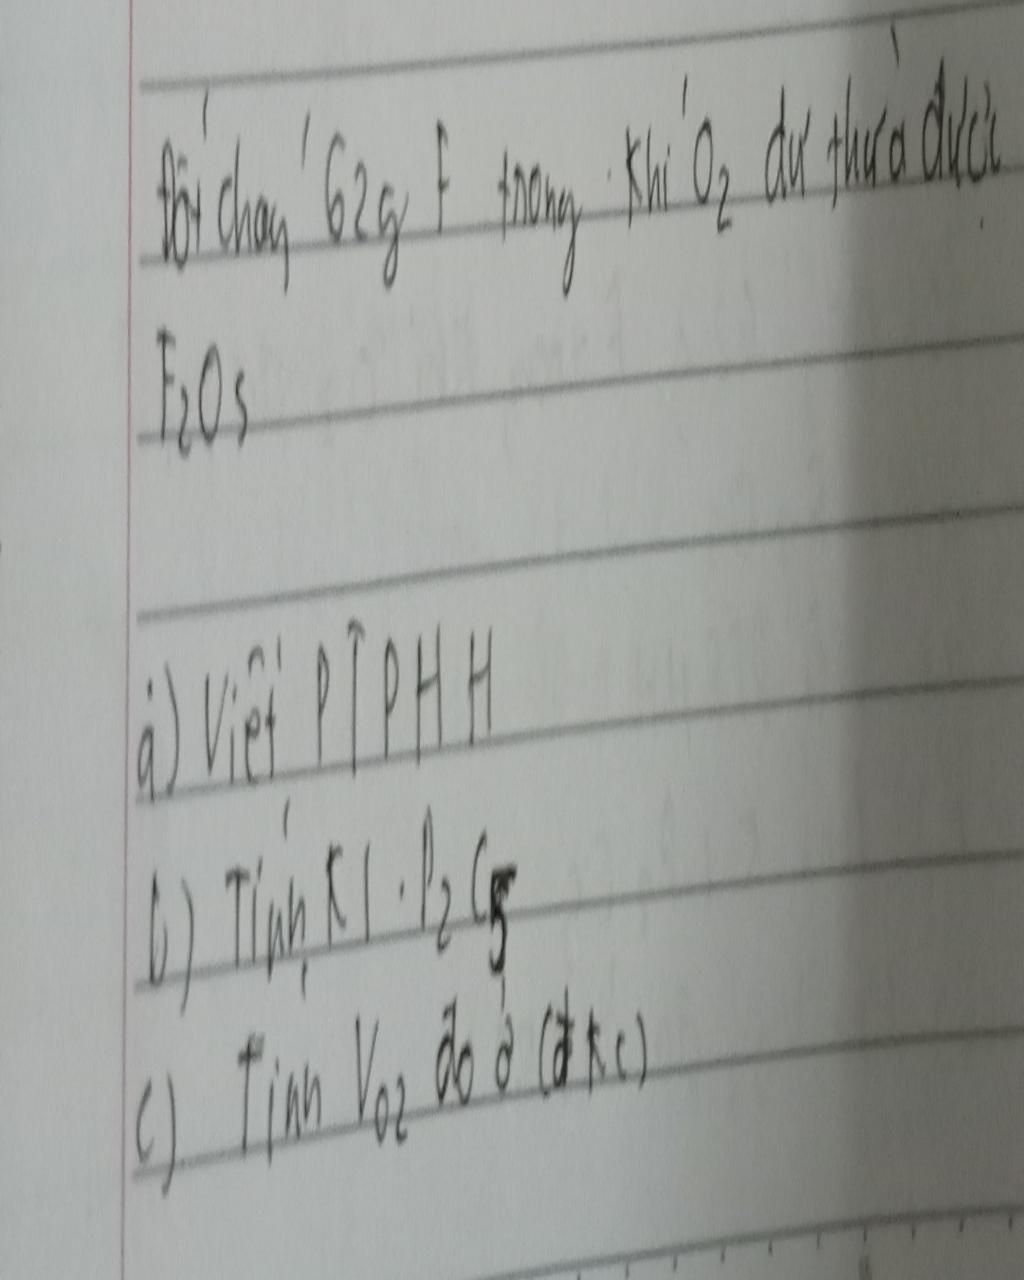 Đốt cháy 62g P trong khí O2 dư thừa được
P2O5
a) Viết PTPHH
b) Tính Kl. P2O5
c) Tính VO2 đo ở (đkc)